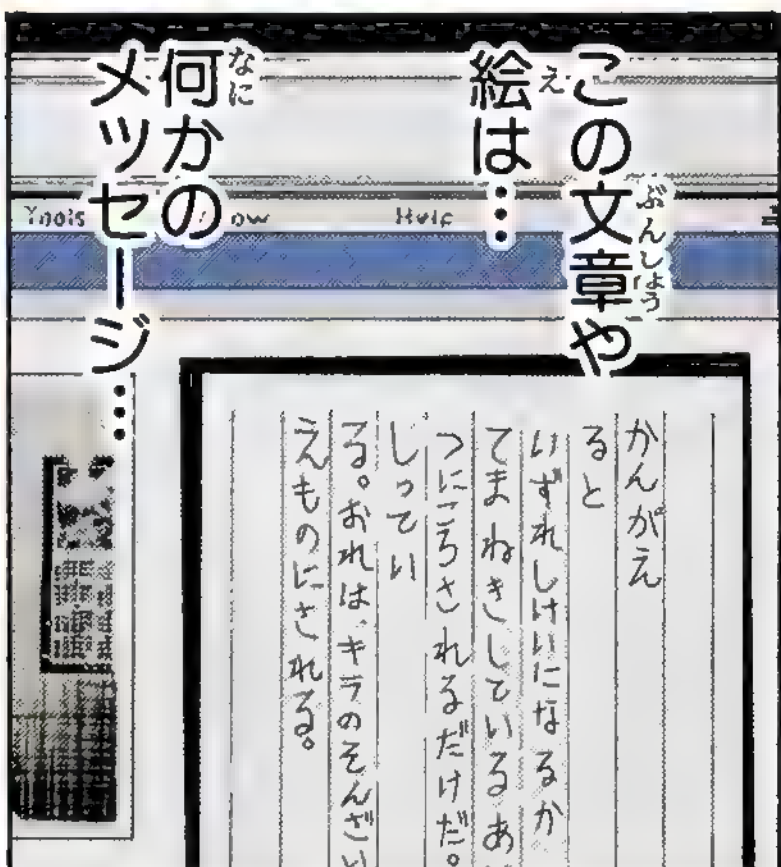 この文章や
ぶんしょう
絵は…
え
何かの
なに
メッセージ…
Tools
ow
Help
かんがえ
ると
いずれしけいになるか
てまねきしているあ
つにころされるだけだ。
しってい
る。おれは、キラのそんざい
えものにされる。